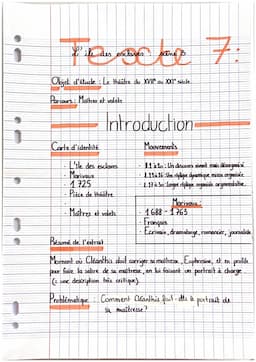 L'île des esclaves : scène 3
Texte 7 :
Objet d'étude : Le théâtre du XVIIe au XXIe siècle.
Parcours : Maîtres et valets
Introduction
Carte d'identité
- L'île des esclaves
- Marivaux
- 1725
- Pièce de théâtre
- Maîtres et valets
Mouvements
Un discours vivant mais désorganisé
Une réplique dynamique mieux organisée
Longue réplique organisée argumentative
Marivaux :
- 1688 - 1763
- Français
- Écrivain, dramaturge, romancier, journaliste
Résumé de l'extrait
Moment où Cléanthis doit corriger sa maîtresse, Euphrosine, et en profite
pour faire la satire de sa maîtresse, en lui faisant un portrait à charge
(= une description très critique).
Problématique : Comment Cléanthis fait-elle le portrait de
sa maîtresse ?